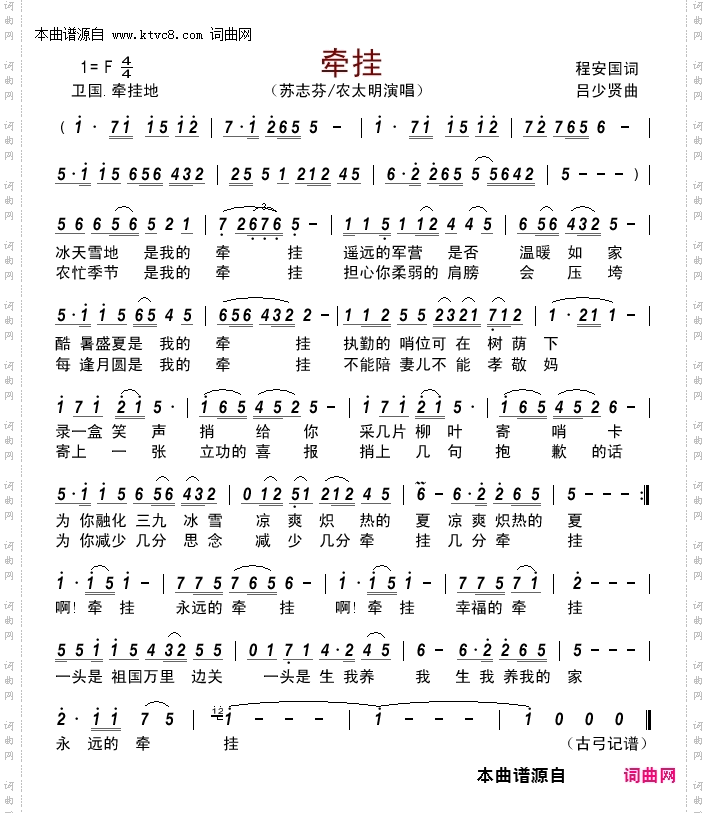 本曲谱源自 www.ktvc8.com 词曲网
牵挂
1= F 4/4
程安国词
卫国.牵挂地
（苏志芬/农太明演唱）
吕少贤曲
( 1· 71 15 12 | 7·1 265 5 - | 1· 71 15 12 | 72 765 6 - |
5·1 15 656 432 | 25 5 1 212 45 | 6·2 265 5 5642 | 5 - - - )
5 6 6 5 6 5 2 1 | 7 2676 5 - | 1 1 5 1 12 4 4 5 | 6 56 432 5 |
冰天雪地 是我的 牵 挂 遥远的军营 是否 温暖 如 家
农忙季节 是我的 牵 挂 担心你柔弱的 肩膀 会 压 垮
5·1 1 5 65 4 5 | 656 432 2 - | 1 1 2 5 5 2321 712 | 1·21 1 - |
酷 暑盛夏是 我的 牵 挂 执勤的 哨位可 在 树 荫 下
每 逢月圆是 我的 牵 挂 不能陪 妻儿不 能 孝 敬 妈
1 7 1 21 5· | 165 452 5 - | 1 7 1 21 5· | 165 452 6 - |
录一盒 笑 声 捎 给 你 采几片 柳 叶 寄 哨 卡
寄上 一 张 立功的 喜 报 捎上 几 句 抱 歉 的话
5·1 1 5 6 56 432 | 0 12 51 212 45 | 6 - 6·2 265 | 5 - - - :||
为 你融化 三九 冰 雪 凉 爽 炽 热的 夏 凉 爽 炽热的 夏
为 你减少 几分 思 念 减 少 几分 牵 挂 几 分 牵 挂
1· 1 15 1 | 7 7 5 765 6 | 1· 1 15 1 | 7 7 5 71 | 2 - - - |
啊! 牵 挂 永远的 牵 挂 啊! 牵 挂 幸福的 牵 挂
5 5 1 1 5 4 32 5 5 | 0 1 7 1 4·2 4 5 | 6 - 6·2 2 6 5 | 5 - - - |
一头是 祖国万里 边关 一头是 生 我养 我 生 我 养我的 家
2· 1 1 75 | 12 1 - - - | 1 - - - | 1 0 0 0 ||
永 远的 牵 挂 （古弓记谱）
本曲谱源自 词曲网